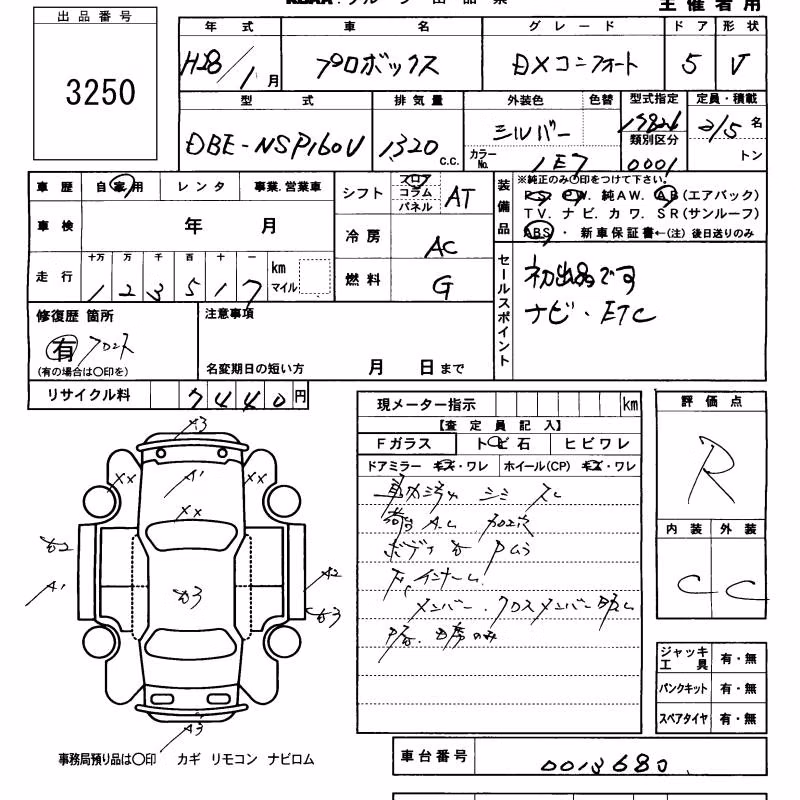 主催者用
出品番号
3250
年式 車名 グレード ドア 形状
H28/1月 プロボックス DXコンフォート 5 V
型式 排気量 外装色 色替 型式指定 定員・積載
DBE-NSP160V 1320 c.c. シルバー カラーNo. 1E7 類別区分 0001 2/5 名 トン
車歴 自家用 レンタ 事業.営業車
シフト フロア コラム パネル AT
装備品 ※純正のみ〇印をつけて下さい
P.S. P.W. 純A.W. A.B(エアバック)
T.V. ナビ. カワ. S.R(サンルーフ)
ABS ・ 新車保証書←(注) 後日送りのみ
車検 年 月
冷房 AC
走行 十万 万 千 百 十 一 km マイル
1 2 3 5 1 7
燃料 G
セールスポイント
初出品です
ナビ・ETC
修復歴 箇所
有 フロント
(有の場合は〇印を)
注意事項
名変期日の短い方 月 日まで
リサイクル料 7440円
現メーター指示 km
【査定員記入】
Fガラス トビ石 ヒビワレ
ドアミラー キズ・ワレ ホイール(CP) キズ・ワレ
シミ スレ
ボディ
F インナー
メンバー. クロスメンバー
のみ
A3
A1
XX XX
XX
A1
A2
A3
評価点
R
内装 外装
C C
ジャッキ工具 有・無
パンクキット 有・無
スペアタイヤ 有・無
事務局預り品は〇印 カギ リモコン ナビロム
車台番号 0013680